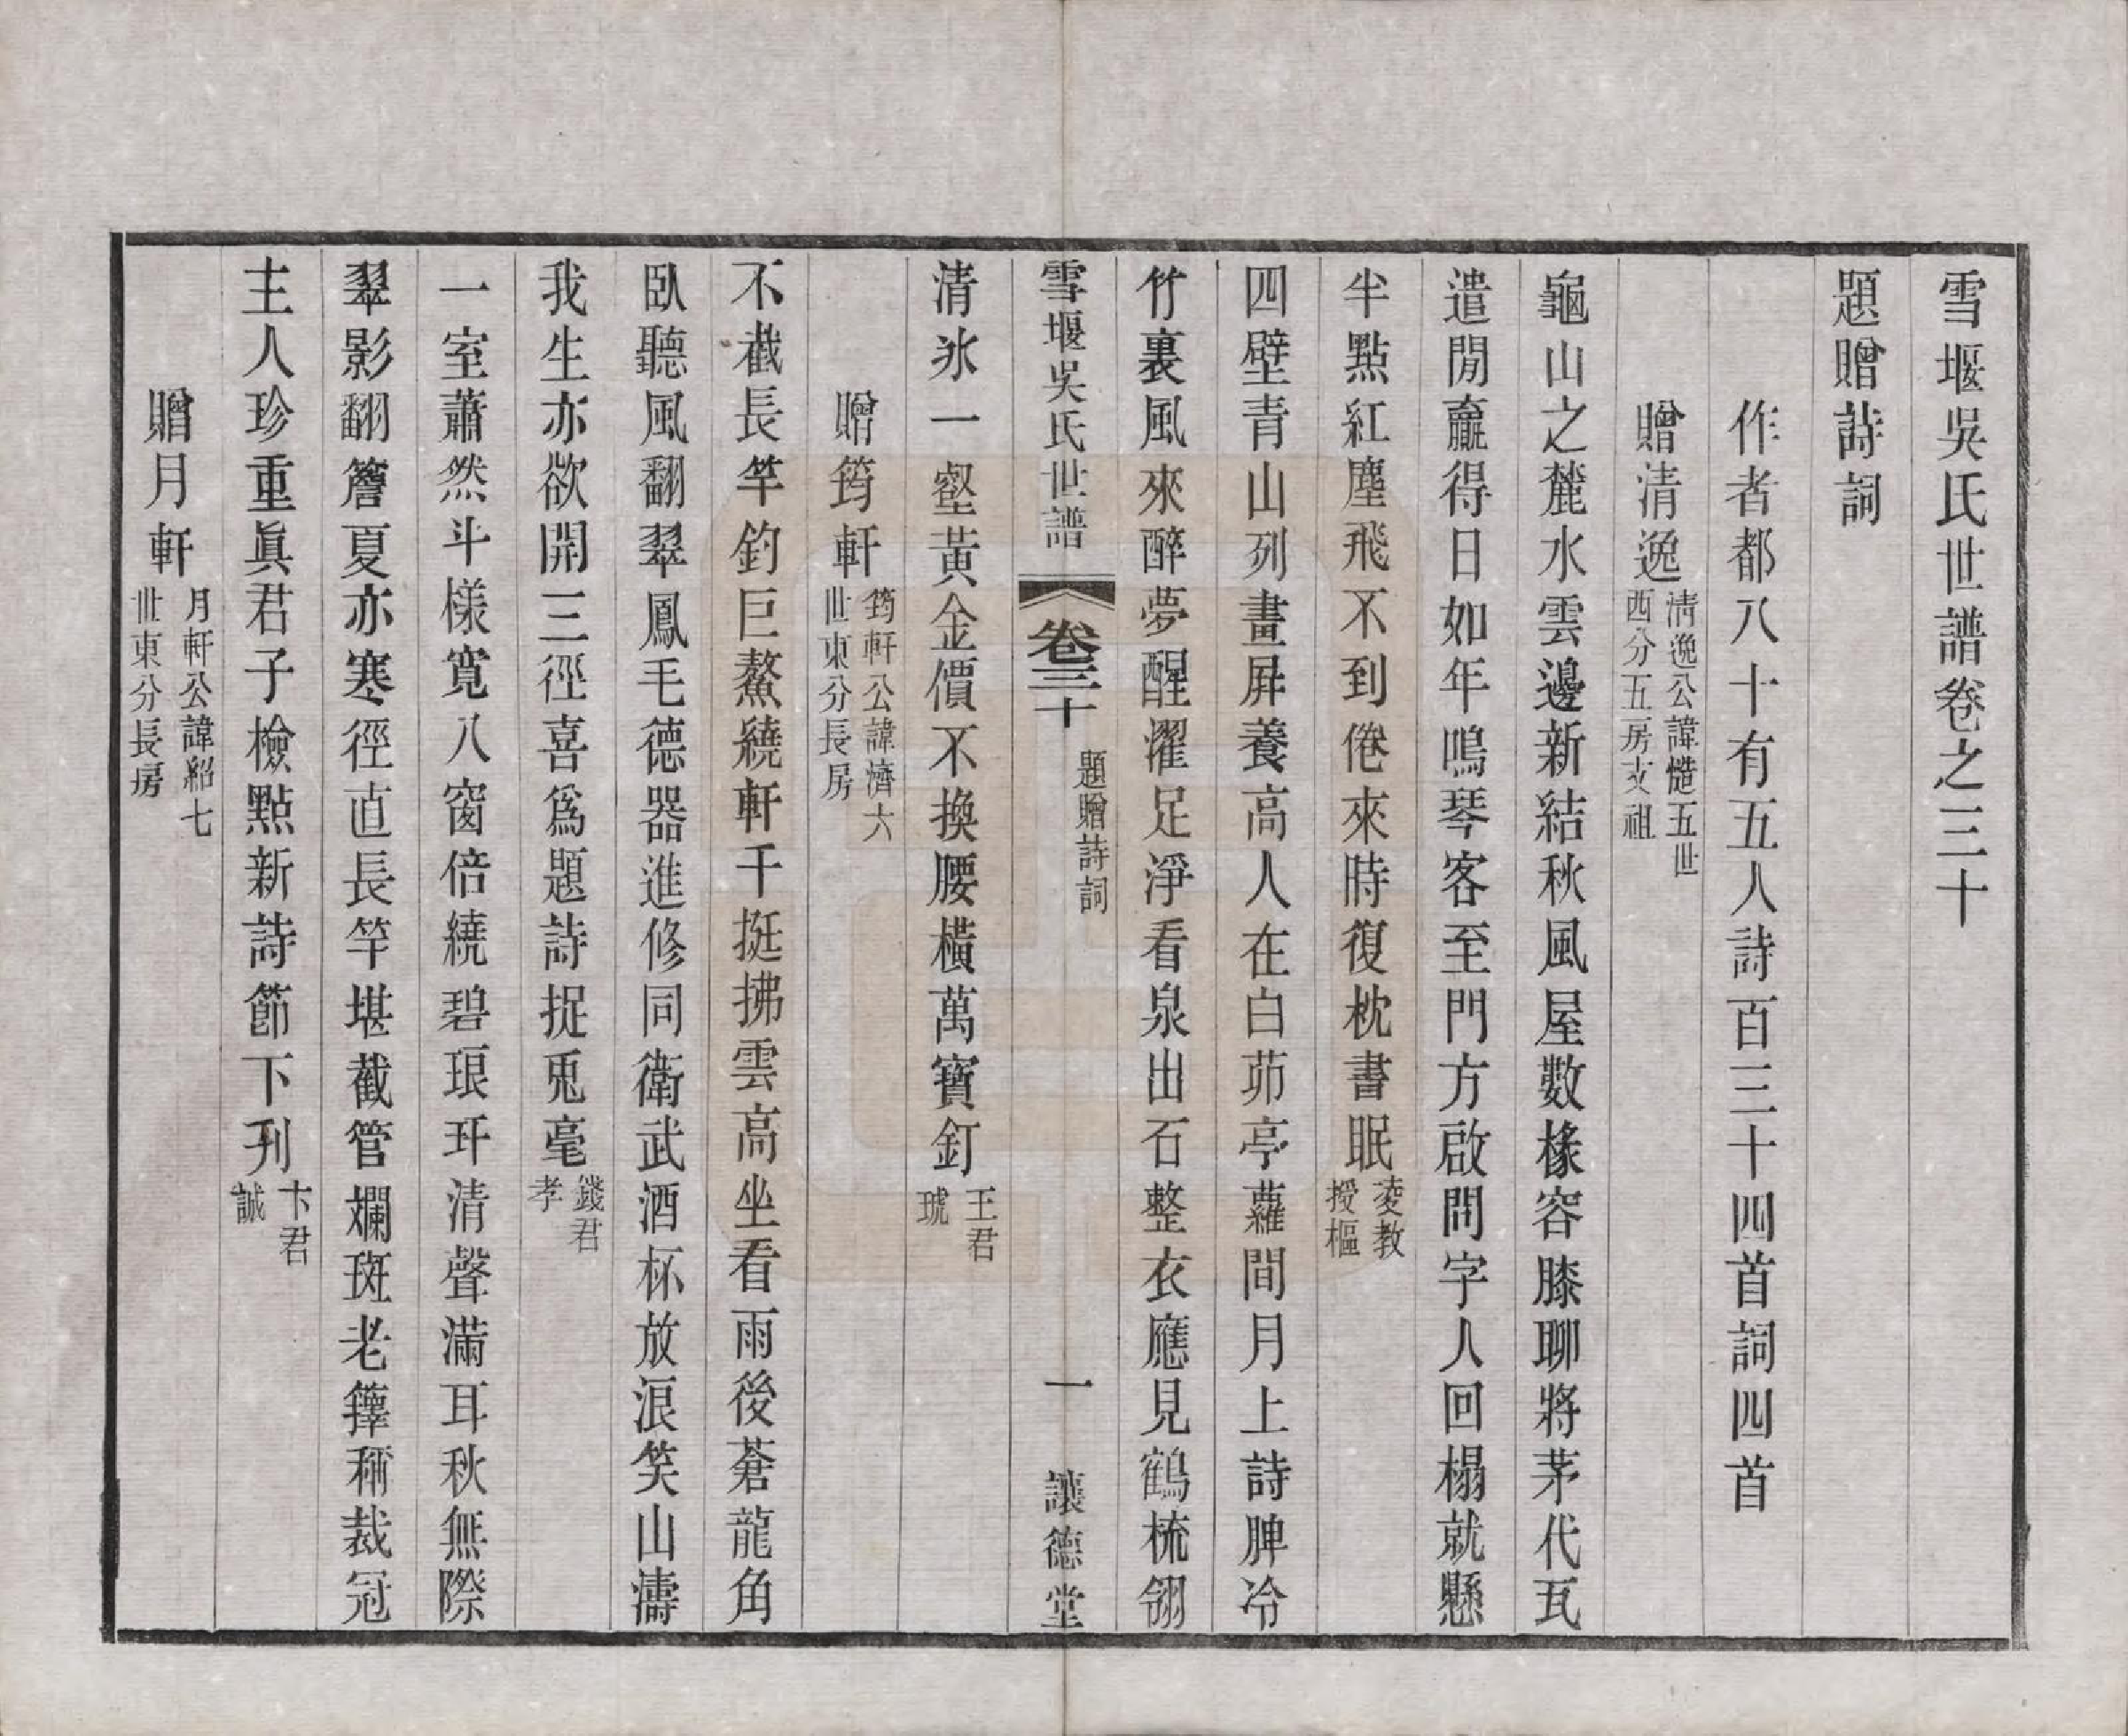 雪堰吳氏世譜卷之三十
題贈詩詞
作者都八十有五人詩百三十四首詞四首
贈清逸
清逸公諱慥五世
西分五房支祖
龜山之麓水雲邊新結秋風屋數椽容膝聊將茅代瓦
遣閒贏得日如年鳴琴客至門方啟問字人回榻就懸
半點紅塵飛不到倦來時復枕書眠
凌教
授樞
四壁青山列畫屏養高人在白茆亭蘿間月上詩脾冷
竹裏風來醉夢醒濯足淨看泉出石整衣應見鶴梳翎
雪堰吳氏世譜
卷三十
題贈詩詞
一
讓德堂
清氷一壑黃金價不換腰橫萬寶釘
王君
琥
贈筠軒
筠軒公諱濟六
世東分長房
不截長竿釣巨鰲繞軒千挺拂雲高坐看雨後蒼龍角
臥聽風翻翠鳳毛德器進修同衛武酒杯放浪笑山濤
我生亦欲開三徑喜爲題詩捉兎毫
錢君
孝
一室蕭然斗樣寬八窗倍繞碧琅玕清聲滿耳秋無際
翠影翻簷夏亦寒徑直長竿堪截管斕斑老籜稱裁冠
主人珍重眞君子檢點新詩節下刋
卞君
誠
贈月軒
月軒公諱紹七
世東分長房